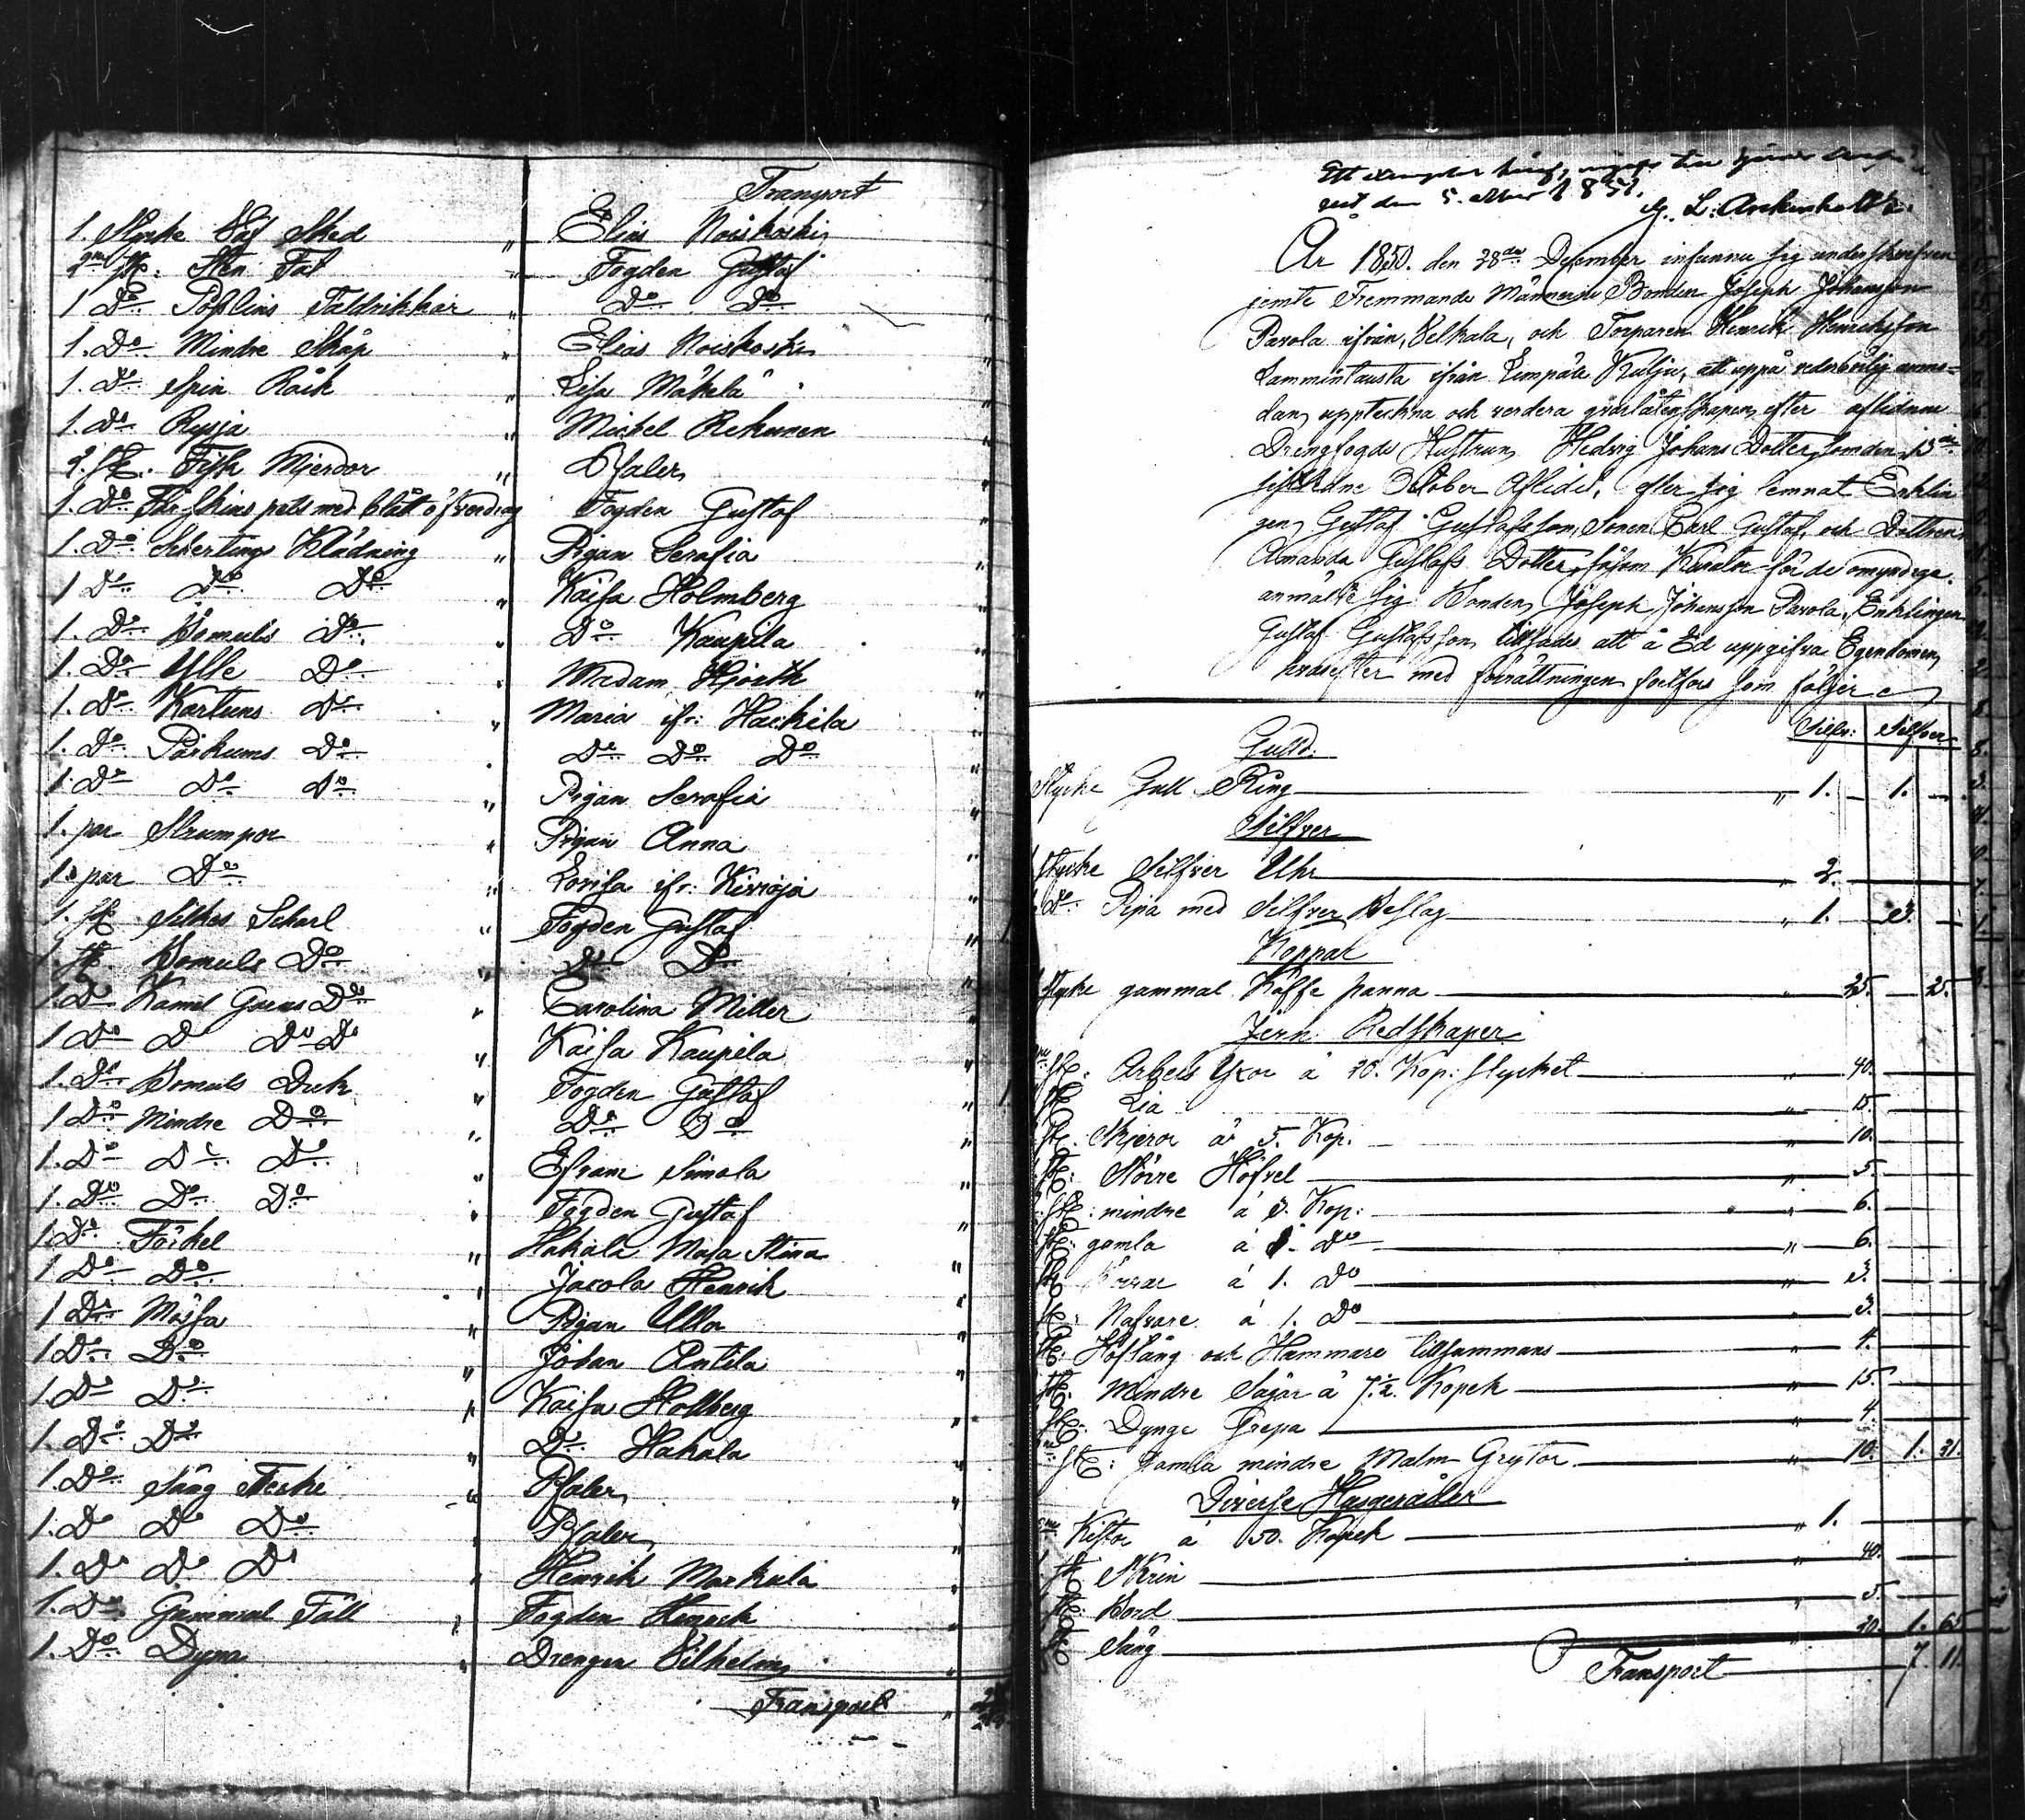 Transport
1. Stycke Väf Sked " Elias Noiskoski
2ne st: Sten Fat " Fogden Gustaf
1 Do Poslins Faldrikkar " Do Do
1. Do Mindre Skåp " Elias Noiskoski
1. Do Spin Råck " Lisa Mäkelä
1. Do Rysja " Michel Rekunen
2. st. Fisk Mjerdor " Pfaler
1. Do Fårskins pels med blått öfverdrag Fogden Gustaf
1. Do Scherting Klädning " Pigan Serafia
1 Do Do Do " Kaisa Holmberg
1. Do Bomuls Do " Do Kaupila
1. Do Ylle Do Madam Hjorth
1. Do Kartuns Do " Maria ifr: Hackila
1. Do Parkums Do Do Do Do
1. Do Do Do " Pigan Serafia
1. par Strumpor " Pigan Anna
1. par Do " Lovisa ifr: Kivioja
1. st Silkes Scharl " Fogden Gustaf
1. st. Bomuls Do " Do Do
1 Do Kamel Garns Do " Carolina Miller
1 Do Do Do Do " Kaisa Kaupila
1. Do Bomuls Duk " Fogden Gustaf
1 Do Mindre Do " Do Do
1. Do Do Do " Efraim Simola
1. Do Do Do " Fogden Gustaf
1. Do Förkel " Hakala Maja Stina
1 Do Do " Jarola Henrik
1 Do Mössa " Pigan Ulla
1 Do Do " Johan Antila
1. Do Do " Kaisa Hollberg
1. Do Do " Do Hakala
1. Do Säng Teske " Pfaler
1. Do Do Do Pfaler
1. Do Do Do Henrik Markula
1. Do Gammal Fäll " Fogden Henrik
1. Do Dyna " Drengen Vilhelm
Transport "
Ett exemplar häraf,
den 5. 1851.
L: Arckenholtz.
År 1850. den 28de December infunno sig underskrefven
jemte Fremmande Männerne Bonden Joseph Johansson
Parola ifrån Velkala, och Torparen Henrik Henriksson
Lammintausta ifrån Limpälä Kulju, att uppå vederbörlig anmo=
dan, uppteckna och verdera qvarlåtenskapen, efter aflidne
Drengfogde Hustrun, Hedvig Johans Dotter, som den 13de
sistledne October Aflidit, efter sig lemnat Enklin
gen, Gustaf Gustafsson, Sonen Carl Gustaf, och Dottren
Amanda Gustafs Dotter, såsom Kurator för de omyndige
anmälte sig Bonden, Joseph Johansson Parola, Enklingen
Gustaf Gustafsson, tillsade att å Ed uppgifva Egendomen,
hvarefter med förrättningen fortfors som följer
Silfr: Silfver
Guld.
Stycke Gull Ring " 1. 1.
Silfver
stycke Silfver Uhr " 2.
1 Do Pipa med Silfver Beslag " 1. 3.
Koppar
stycke gammal Kaffe panna " 25. 25.
Jern Redskaper
st: Arbets Yxor à 20. Kop: stycket " 40.
st Lia " 15.
st. Skjeror àr 5. Kop. " 10.
st: Större Höfvel " 5.
st: mindre à 3. Kop: " 6.
st: gamla à Do " 6.
st: à 1. Do " 3.
st: Nafvare à 1. Do " 3.
st: Hoftång och Hammare tillsammans " 4.
st: Mindre Sågar à 7½. Kopek " 15.
st: Dynge Grepa " 4.
st: Gamla mindre Malm Grytor. " 10. 1. 21.
Diverse Husgeråder
2ne Kistor à 50. Kopek " 1.
1 st Skrin " 40.
st: Bord " 5.
st: Säng " 20. 1. 65
Transport 7. 11.